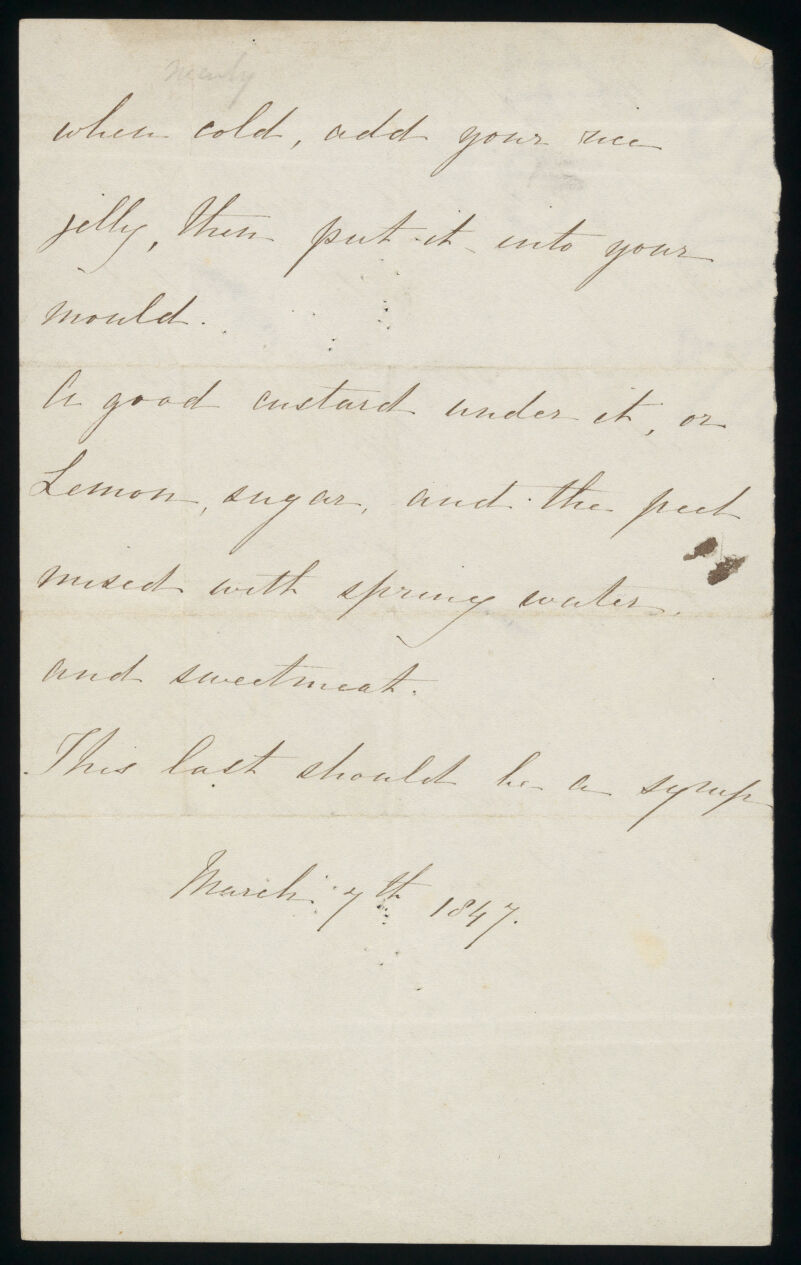 nearly
when cold, add your rice
jelly, then put it into your
mould.
A good custard under it, or
Lemon, sugar, and the peel
mixed with spring water.
and sweetmeat.
This last should be a syrup
March 7th 1847.